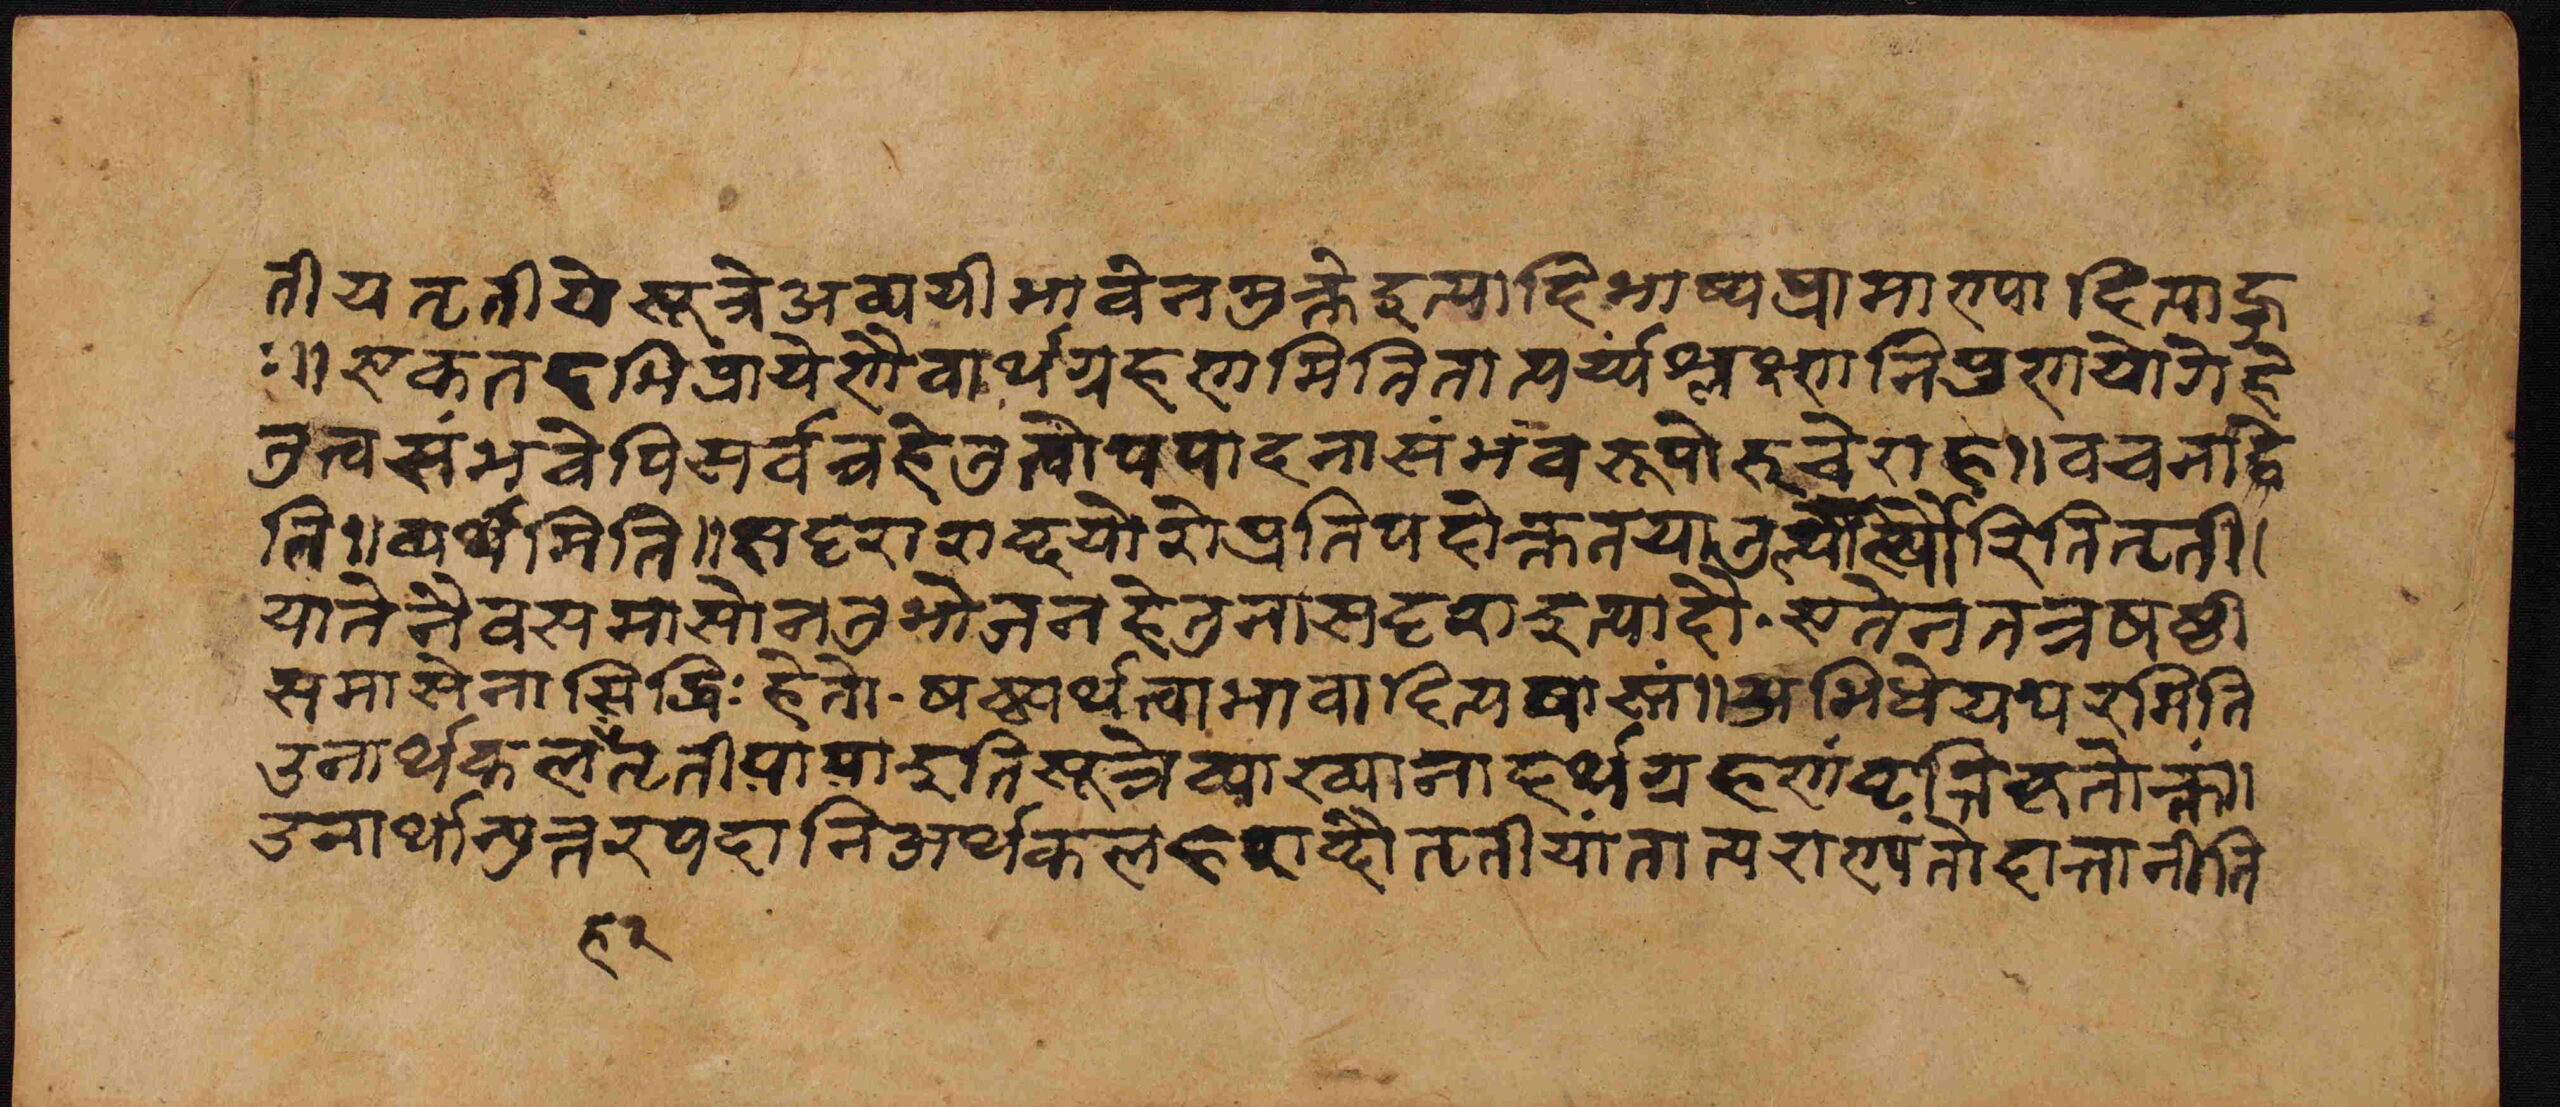 तीयतृतीयेसूत्रेअव्ययीभावेनमुक्तेइत्यादिभाष्यप्रामाण्यादित्याहु
ः॥एकतदभिप्रायेणैवार्थग्रहणमितितात्पर्य्यंश्लक्ष्णनिपुणयोगेहे
तुत्वसंभवेपिसर्वत्रहेतुत्वोपपादनासंभवरूपोरुचेराह॥वचनादि
ति॥व्यर्थमिति॥सदृशशब्दयोरोप्रतिपदोक्ततयातुल्यार्थैरितितृती।
यातेनैवसमासोनतुभोजनहेतुनासदृशइत्यादौ॰एतेनतत्रषष्ठी
समासेनासिद्धिःहेतो॰षष्ठ्यर्थत्वाभावादित्यपास्तं॥अभिधेयपरमिति
उनार्थकलहंतृतीयायाइतिसूत्रेव्याख्यानादर्थग्रहणंवृत्तिकृतोक्तं॥
उनार्थान्युत्तरपदानिअर्थकलहशब्दौतृतीयांतात्पराण्यंतोदात्तानीति